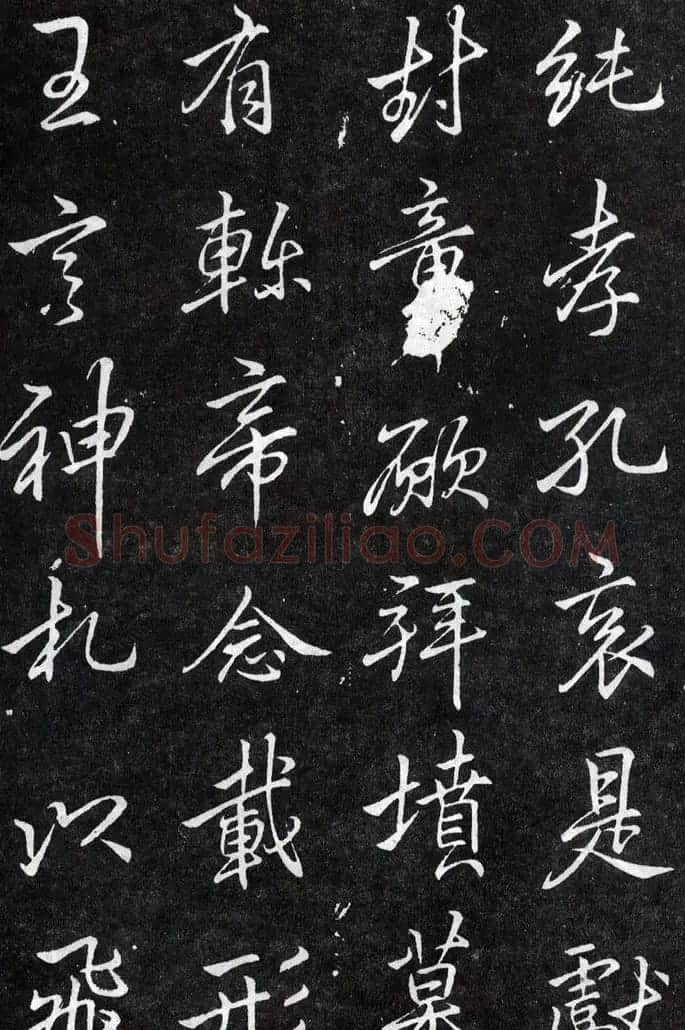 純孝孔哀是獻
封章願拜墳墓
有軫帝念載形
王言神札以飛
Shufaziliao.COM